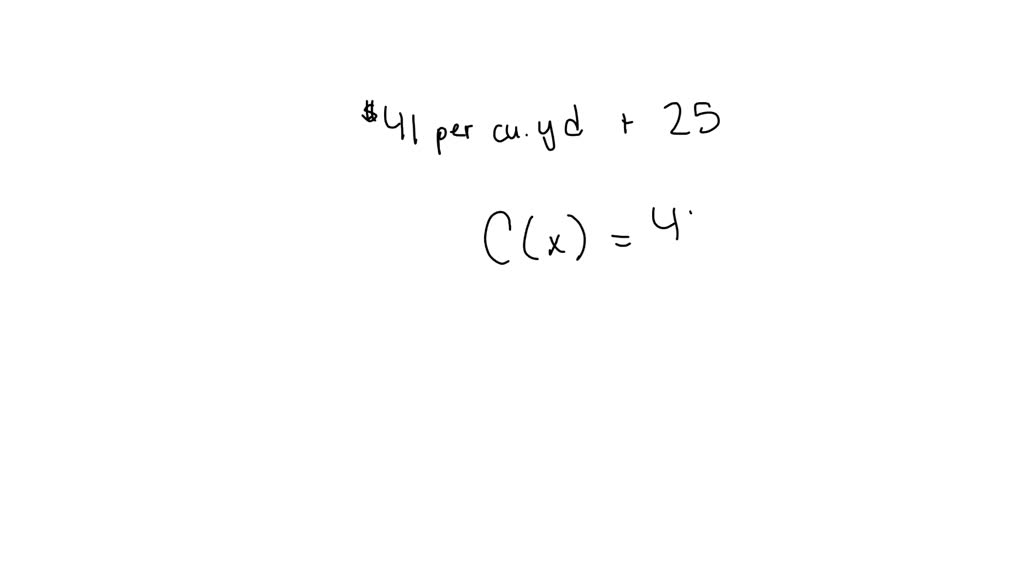 $41 per cu. yd + 25
C(x) = 4